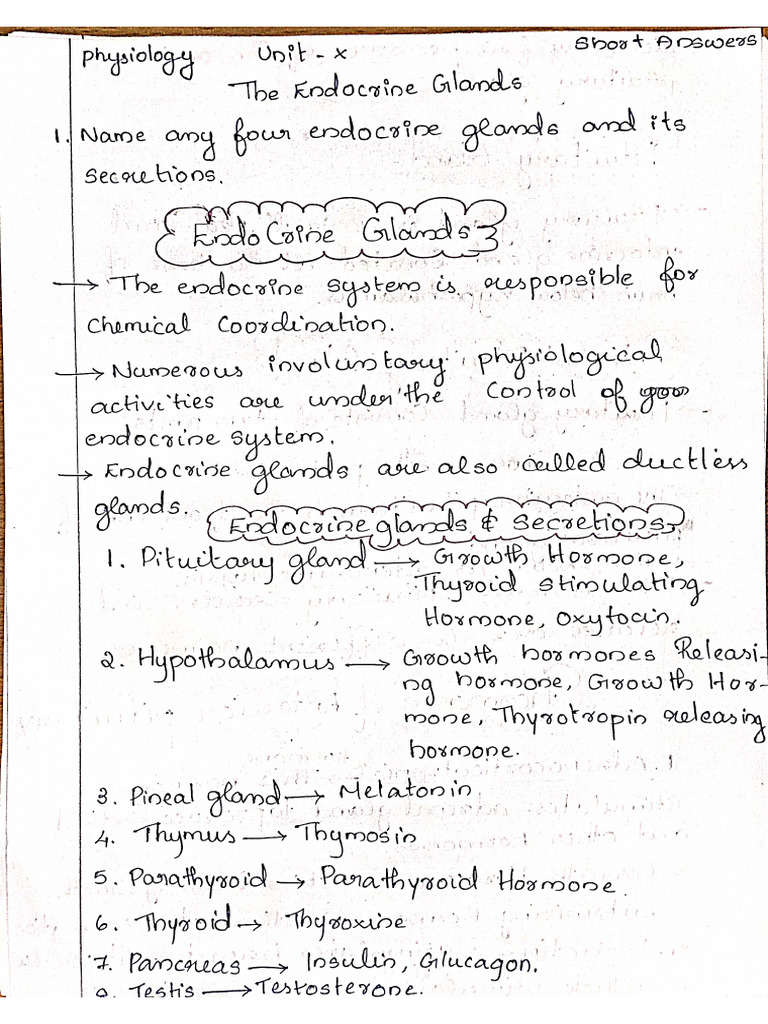 physiology Unit - x Short Answers
The Endocrine Glands
1. Name any four endocrine glands and its
secretions.
Endo Crine Glands
→ The endocrine system is responsible for
chemical coordination.
→ Numerous involuntary physiological
activities are under the control of
endocrine system.
→ Endocrine glands are also called ductless
glands.
Endocrine glands & secretions
1. Pituitary gland → Growth Hormone,
Thyroid stimulating
Hormone, oxytocin.
2. Hypothalamus → Growth hormones Releasi-
ng hormone, Growth Hor-
mone, Thyrotropin releasing
hormone.
3. Pineal gland → Melatonin
4. Thymus → Thymosin
5. Parathyroid → Parathyroid Hormone.
6. Thyroid → Thyroxine
7. Pancreas → Insulin, Glucagon.
Testis → Testosterone.